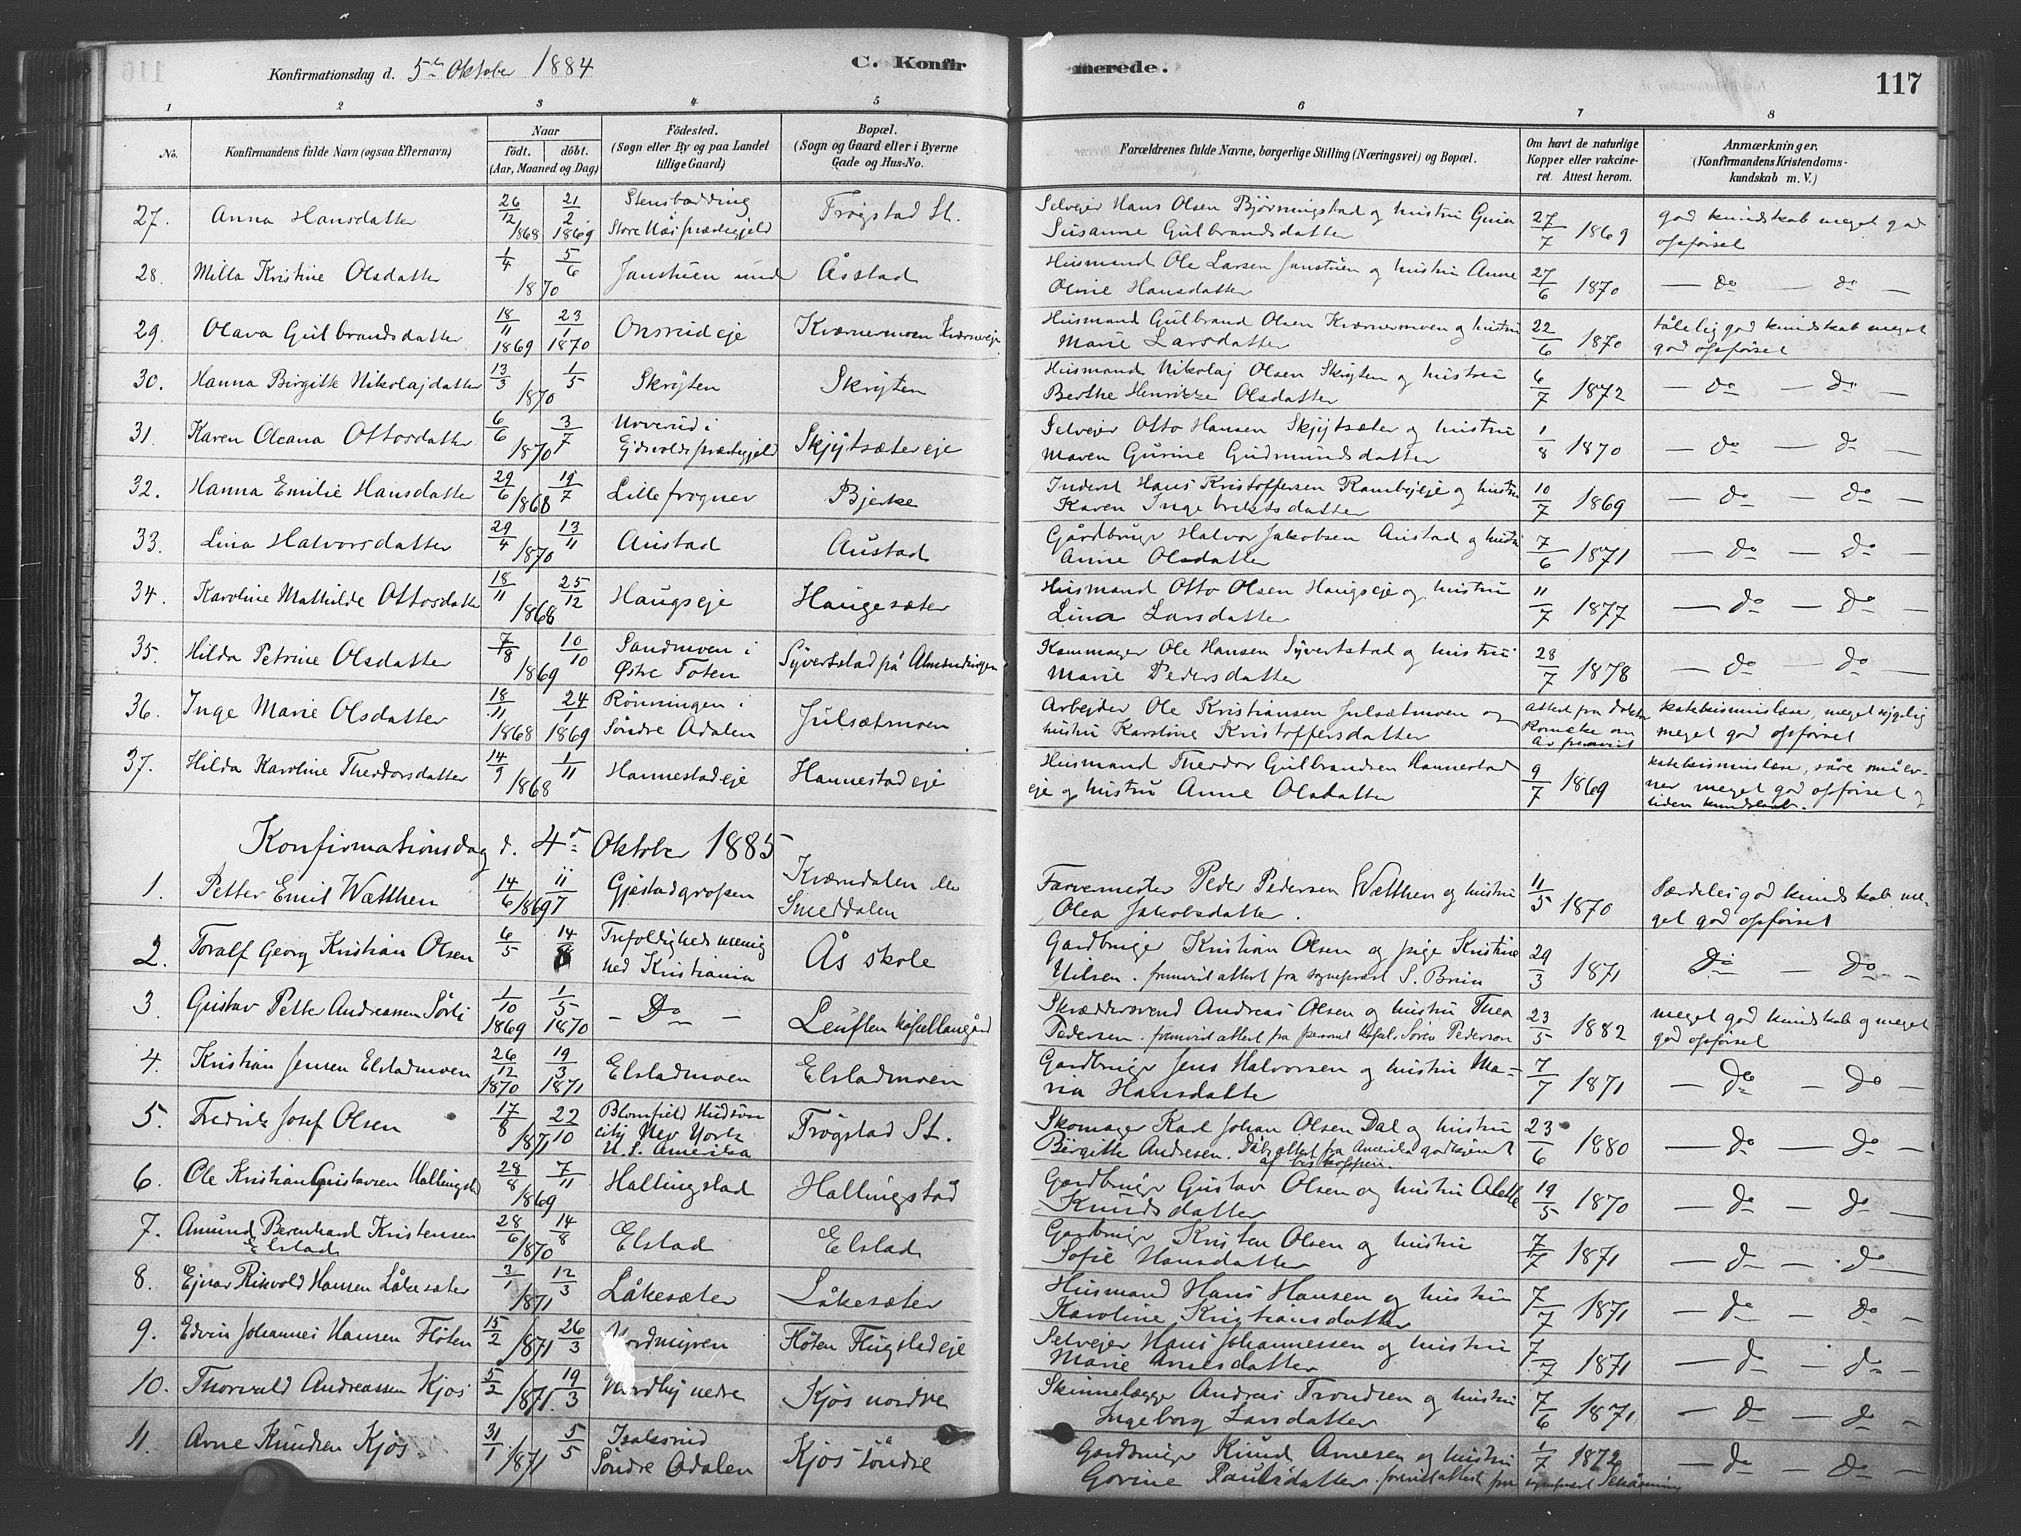 Konfirmationsdag d. 5te Oktober 1884
C. Konfir
merede.
117
1 2 3 4 5 6 7 8
No.
Konfirmandens fulde Navn (ogsaa Efternavn)
Naar
födt. döbt.
(Aar, Maaned og Dag)
Födested.
(Sogn eller By og paa Landet
tillige Gaard)
Bopæl.
(Sogn og Gaard eller i Byerne
Gade og Hus-No.
Forældrenes fulde Navne, borgerlige Stilling (Næringsvei) og Bopæl.
Om havt de naturlige
Kopper eller vakcine-
ret. Attest herom.
Anmærkninger.
(Konfirmandens Kristendoms-
kundskab m. V.)
27. Anna Hansdatter 26/12 1868 21/2 1869 Store Næs præstegjeld Frøgstad St. Selveier Hans Olsen Bjørningstad og hustru Guia
Susanne Gulbrandsdatter 27/7 1869 god kundskab meget god
opførsel
28. Milla Kristine Olsdatter 1/4 5/6 1870 Janstuen und Åsstad Husmand Ole Larsen Janstuen og hustru Anne
Oline Hansdatter 27/6 1870 — do — do —
29. Olava Gulbrandsdatter 18/11 1869 23/1 1870 Onsrudeje Kværnermoen Husmand Gulbrand Olsen Kværnermoen og hustru
Marie Larsdatter 22/6 1870 tålelig god kundskab meget
god opførsel
30. Hanna Birgitte Nikolajdatter 13/3 1/5 1870 Skrýten Skrýten Husmand Nikolaj Olsen Skrýten og hustru
Berthe Henrikke Olsdatter 6/7 1872 — do — do —
31. Karen Oleana Ottosdatter 6/6 3/7 1870 Eidsvolds præstegjeld Skjýtsætereje Selvejer Otto Hansen Skjýtsæter og hustru
Maren Gurine Gudmundsdatter 1/8 1870 — do — do —
32. Hanna Emilie Hansdatter 29/6 19/7 1868 Lillefrogner Bjerke Inderst Hans Kristoffersen og hustru
Karen Ingebretsdatter 10/7 1869 — do — do —
33. Lina Halvorsdatter 29/4 13/11 1870 Austad Austad Gårdbruger Halvor Jakobsen Austad og hustru
Anne Olsdatter 7/6 1871 — do — do —
34. Karoline Mathilde Ottosdatter 18/11 25/12 1868 Haugseje Haugesæter Husmand Otto Olsen Haugseje og hustru
Lina Larsdatter 11/7 1877 — do — do —
35. Hilda Petrine Olsdatter 7/8 10/10 1869 Sandmoen i
Østre Toten Syvertstad på Almendingen Ole Hansen Syvertstad og hustru
Marie Pedersdatter 28/7 1878 — do — do —
36. Inge Marie Olsdatter 18/11 1868 24/1 1869 Rønningen i
Søndre Odalen Julsætmoen Arbejder Ole Kristiansen Julsætmoen og
hustru Karoline Kristoffersdatter attest fra doktor
katekismuslæser, meget sygelig
meget god opførsel
37. Hilda Karoline Theodorsdatter 14/9 1/11 1868 Hannestadeje Hannestadeje Husmand Theodor Gulbrandsen Hannestad
eje og hustru Anne Olsdatter 9/7 1869 katekismuslæser, såre små ev-
ner meget god opførsel og
liden kundskab.
Konfirmationsdag d. 4de Oktober 1885
1. Petter Emil Wætthen 14/6 11/7 1869 Gjestadgropen Kværndalen
Smeddalen Farvemester Peder Pedersen Wætthen og hustru
Olea Jakobsdatter. 11/5 1870 Særdeles god kundskab me-
get god opførsel
2. Toralf Georg Kristian Olsen 6/5 14/8 Trefoldigheds menig
hed Kristiania Ås skole Gårdbruger Kristian Olsen og pige Kristine
Nilsen. fremvist attest fra sogneprest S. Bruun 29/3 1871 Do Do —
3. Gustav Petter Andreassen Sørli 1/10 1869 1/5 1870 — Do — Leuften Skræddersvend Andreas Olsen og hustru Thea
Pedersen. fremvist attest fra Søren Pedersen 23/5 1882 meget god kundskab og meget
god opførsel
4. Kristian Jensen Elstadmoen 26/12 1870 19/3 1871 Elstadmoen Elstadmoen Gårdbruger Jens Halvorsen og hustru Ma-
ria Hansdatter 7/7 1871 — do — do —
5. Fredrik Josef Olsen 17/8 22/10 1871 Blomfield Hudson
city New York
U. S. Amerika Frøgstad St. Skomager Karl Johan Olsen Dal og hustru
Birgitte Andresen. Dåbsattest fra Amerika godkjendt
af biskoppen. 23/6 1880 — do — do —
6. Ole Kristian Gustavsen Hallingstad 28/8 7/11 1869 Hallingstad Hallingstad Gårdbruger Gustav Olsen og hustru Alette
Knudsdatter 19/5 1870 — do — do —
7. Amund Berenhard Kristensen
Elstad 28/6 14/8 1870 Elstad Elstad Gårdbruger Kristen Olsen og hustru
Sofie Hansdatter 7/7 1871 — do — do —
8. Ejnar Rikvold Hansen Låkesæter 3/1 12/3 1871 Låkesæter Låkesæter Husmand Hans Hansen og hustru
Karoline Kristiansdatter 7/7 1871 — do — do
9. Edvin Johannes Hansen Fløten 15/2 26/3 1871 Nordmyren Fløten Flugstadeje Selvejer Hans Johannessen og hustru
Marie Arnesdatter 7/7 1871 — do — do —
10. Thorvald Andreassen Kjos 5/2 19/3 1871. Nordby nedre Kjos nordre Skinnelægger Andreas Trondsen og hustru
Ingeborg Larsdatter 7/6 1871 — do — do —
11. Arne Knudsen Kjos 31/1 5/5 1871 Isaksrud
Søndre Odalen Kjos søndre Gårdbruger Knud Arnesen og hustru
Gorine Paulsdatter. fremvist attest fra sogneprest 1/7 1872 — do — do —